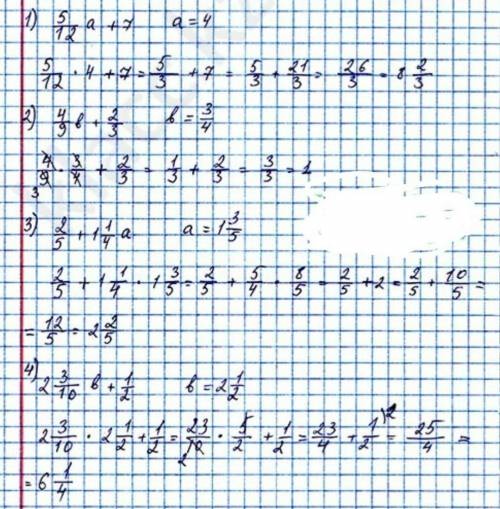 1) 5/12 a + 7 a = 4
5/12 · 4 + 7 = 5/3 + 7 = 5/3 + 21/3 = 26/3 = 8 2/3
2) 4/9 в + 2/3 в = 3/4
4/9 3 · 3/4 + 2/3 = 1/3 + 2/3 = 3/3 = 1
3) 2/5 + 1 1/4 a a = 1 3/5
2/5 + 1 1/4 · 1 3/5 = 2/5 + 5/4 · 8/5 = 2/5 + 2 = 2/5 + 10/5 =
= 12/5 = 2 2/5
4) 2 3/10 в + 1/2 в = 2 1/2
2 3/10 · 2 1/2 + 1/2 = 23/10 2 · 5/2 + 1/2 = 23/4 + 1/2 )2 = 25/4 =
= 6 1/4